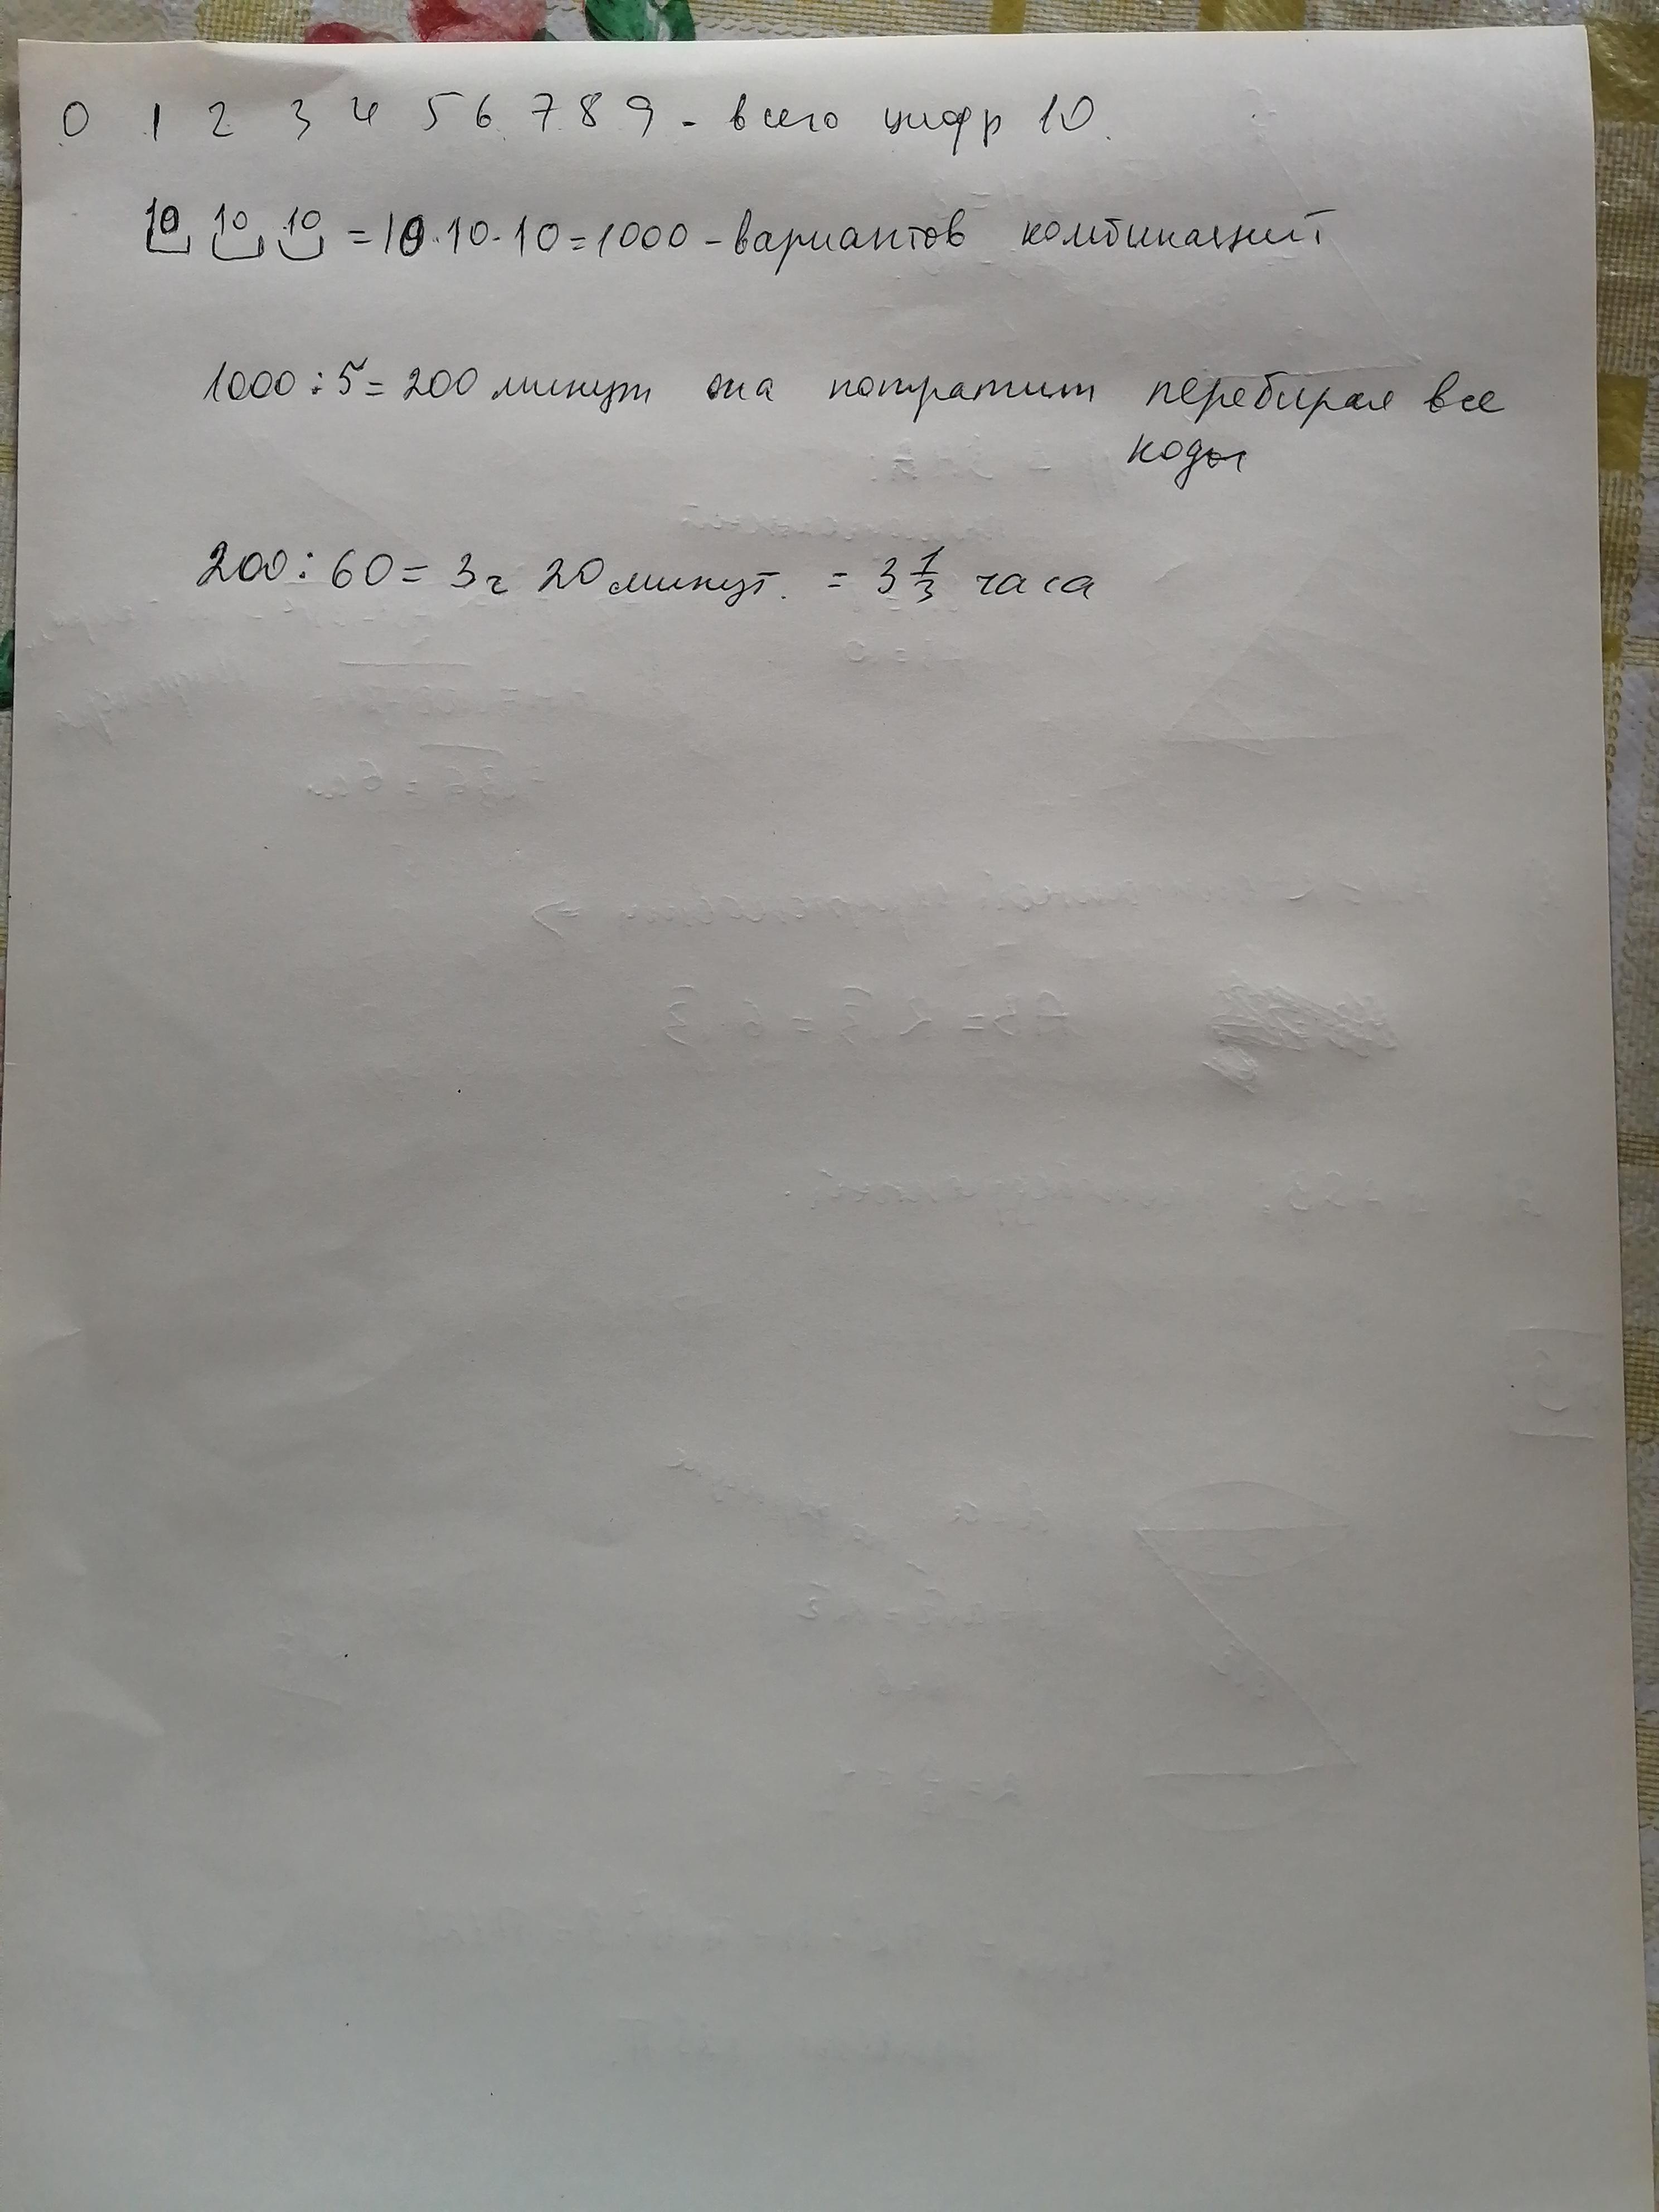 0 1 2 3 4 5 6 7 8 9 - всего цифр 10.
10 10 10 = 10·10·10=1000 - вариантов комбинаций
1000:5=200 минут она потратит перебирая все
коды
200:60= 3ч 20 минут. = 3 1/3 часа